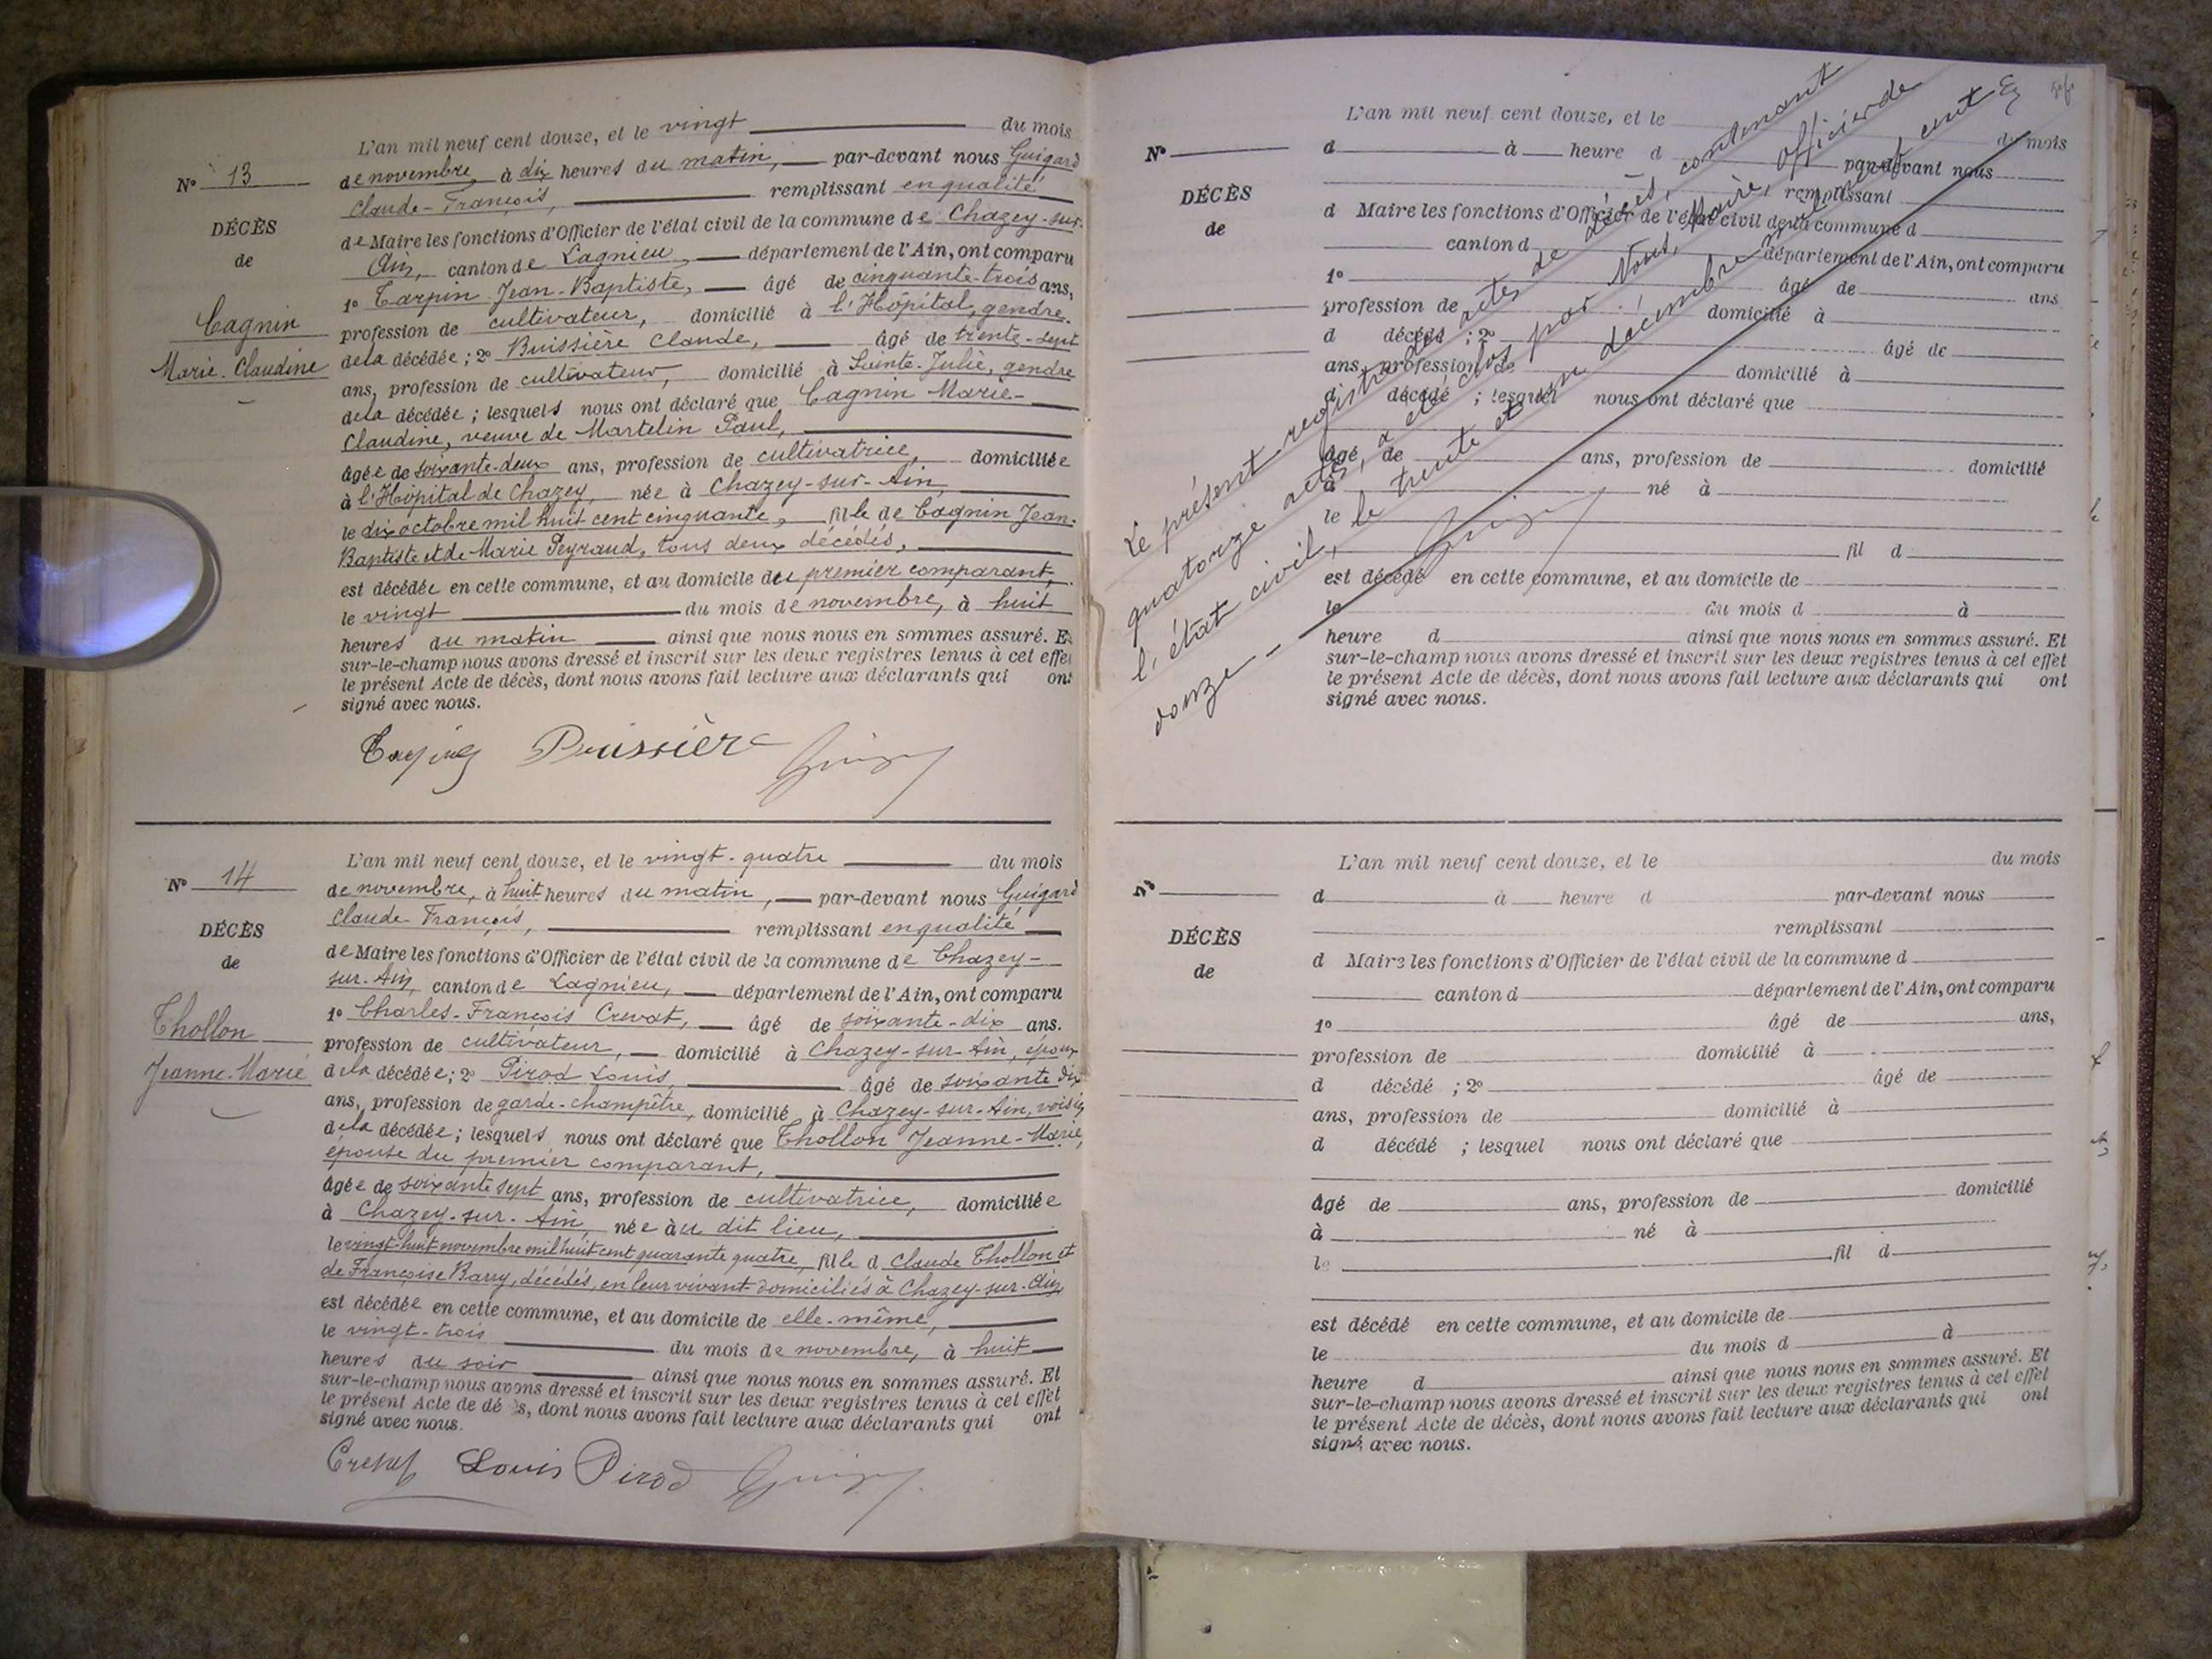 N° 13
DÉCÈS
de
Cagnin
Marie-Claudine
L'an mil neuf cent douze, et le vingt du mois
de novembre, à dix heures du matin, par-devant nous Guigard
Claude-François, remplissant en qualité
de Maire les fonctions d'Officier de l'état civil de la commune de Chazey-sur-
Ain, canton de Lagnieu, département de l'Ain, ont comparu
1° Carpin Jean-Baptiste, âgé de cinquante-trois ans,
profession de cultivateur, domicilié à l'Hôpital, gendre
de la décédée ; 2° Buissière Claude, âgé de trente-sept
ans, profession de cultivateur, domicilié à Sainte-Julie, gendre
de la décédée ; lesquels nous ont déclaré que Cagnin Marie-
Claudine, veuve de Martelin Paul,
âgée de soixante-deux ans, profession de cultivatrice, domiciliée
à l'Hôpital de Chazey, née à Chazey-sur-Ain,
le dix octobre mil huit cent cinquante, fille de Cagnin Jean-
Baptiste et de Marie Peyraud, tous deux décédés,
est décédée en cette commune, et au domicile du premier comparant,
le vingt du mois de novembre, à huit
heures du matin ainsi que nous nous en sommes assuré. Et
sur-le-champ nous avons dressé et inscrit sur les deux registres tenus à cet effet
le présent Acte de décès, dont nous avons fait lecture aux déclarants qui ont
signé avec nous.
Buissière
N° 14
DÉCÈS
de
Thollon
Jeanne-Marie
L'an mil neuf cent douze, et le vingt-quatre du mois
de novembre, à huit heures du matin, par-devant nous Guigard
Claude François, remplissant en qualité
de Maire les fonctions d'Officier de l'état civil de la commune de Chazey-
sur-Ain, canton de Lagnieu, département de l'Ain, ont comparu
1° Charles-François Crevat, âgé de soixante-dix ans.
profession de cultivateur, domicilié à Chazey-sur-Ain, époux
de la décédée; 2° Pirod Louis, âgé de soixante dix
ans, profession de garde-champêtre, domicilié à Chazey-sur-Ain, voisin
de la décédée; lesquels nous ont déclaré que Thollon Jeanne-Marie,
épouse du premier comparant,
âgée de soixante sept ans, profession de cultivatrice, domiciliée
à Chazey-sur-Ain, née à u dit lieu,
le vingt-huit novembre mil huit cent quarante quatre, fille d Claude Thollon et
de Françoise Barry, décédés, en leur vivant domiciliés à Chazey-sur-Ain,
est décédée en cette commune, et au domicile de elle-même,
le vingt-trois du mois de novembre, à huit
heures du soir ainsi que nous nous en sommes assuré. Et
sur-le-champ nous avons dressé et inscrit sur les deux registres tenus à cet effet
le présent Acte de dé s, dont nous avons fait lecture aux déclarants qui ont
signé avec nous.
Crevat Louis Pirod
N°
DÉCÈS
de
L'an mil neuf cent douze, et le du mois
d à heure d par-devant nous
remplissant
d Maire les fonctions d'Officier de l'état civil de la commune d
canton d département de l'Ain, ont comparu
1° âgé de ans
profession de domicilié à
d décédé ; 2° âgé de
ans, profession de domicilié à
d décédé ; lesquel nous ont déclaré que
âgé de ans, profession de domicilié
à né à
le
fil d
est décédé en cette commune, et au domicile de
le du mois d à
heure d ainsi que nous nous en sommes assuré. Et
sur-le-champ nous avons dressé et inscrit sur les deux registres tenus à cet effet
le présent Acte de décès, dont nous avons fait lecture aux déclarants qui ont
signé avec nous.
Le présent registre des actes de décès, contenant
quatorze actes, a été clos par Nous, Maire, officier de
l'état civil, le trente et un décembre mil neuf cent
douze
N°
DÉCÈS
de
L'an mil neuf cent douze, et le du mois
d à heure d par-devant nous
remplissant
d Maire les fonctions d'Officier de l'état civil de la commune d
canton d département de l'Ain, ont comparu
1° âgé de ans,
profession de domicilié à
d décédé ; 2° âgé de
ans, profession de domicilié à
d décédé ; lesquel nous ont déclaré que
âgé de ans, profession de domicilié
à né à
le fil d
est décédé en cette commune, et au domicile de
le du mois d à
heure d ainsi que nous nous en sommes assuré. Et
sur-le-champ nous avons dressé et inscrit sur les deux registres tenus à cet effet
le présent Acte de décès, dont nous avons fait lecture aux déclarants qui ont
signé avec nous.